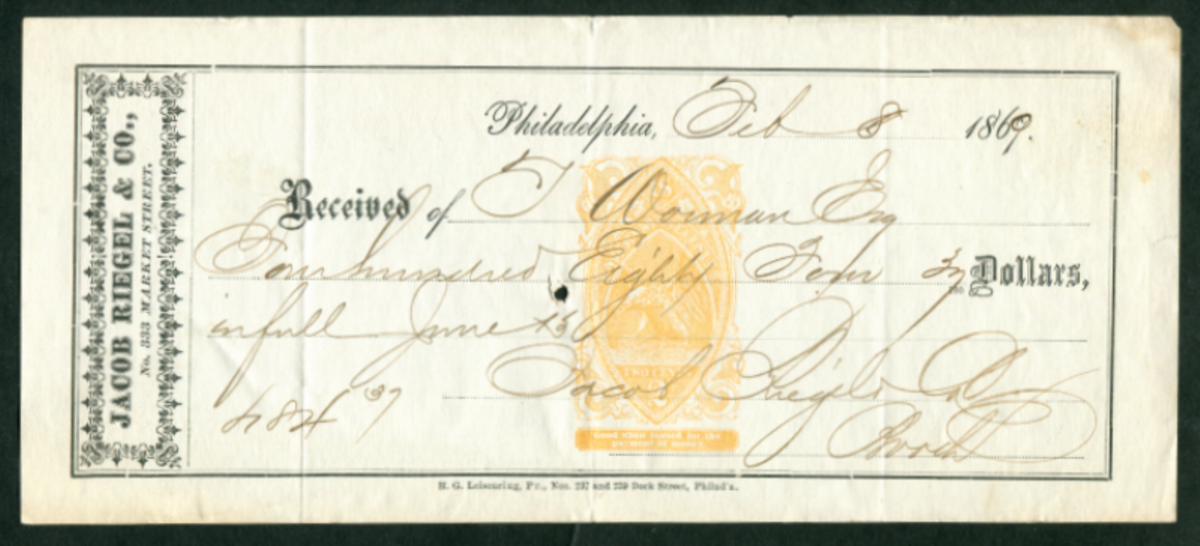 JACOB RIEGEL & CO.,
No. 333 MARKET STREET.
Philadelphia, Feb 8 1869.
Received of T Worman Esq
Four hundred Eighty Four 37/100 Dollars,
in full June
Jacob Riegel Co
484 37
Good when issued for the
payment of money.
H. G. Leisenring, Pr., Nos. 237 and 239 Dock Street, Philad'a.